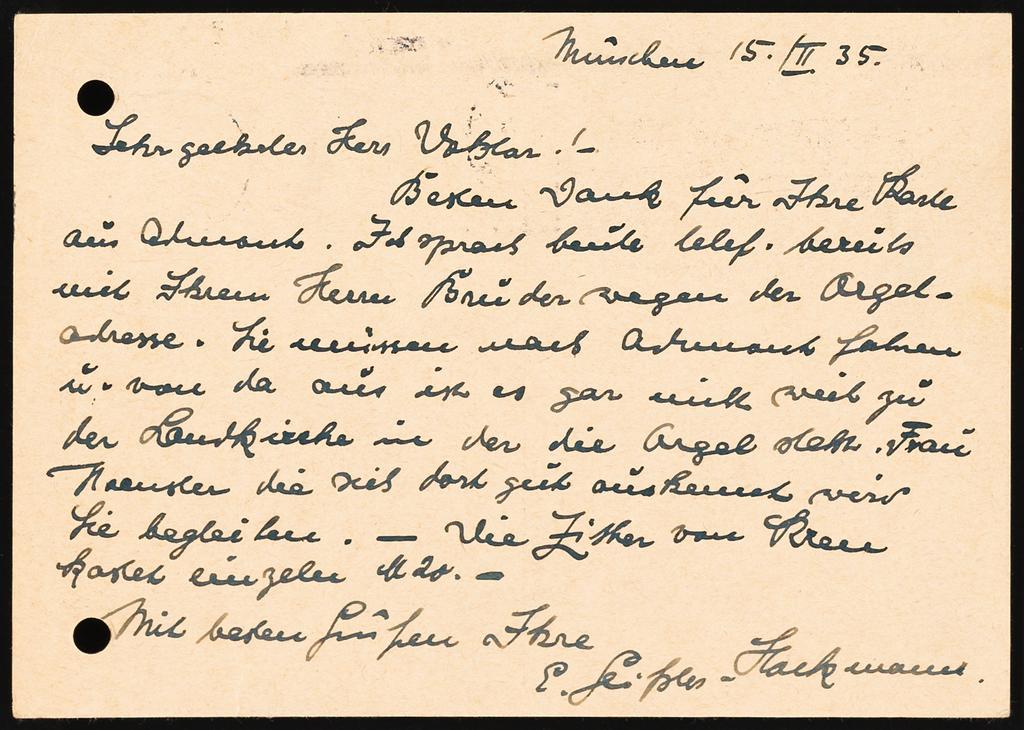 München 15. II 35.
Sehr geehrter Herr Voßlar! -
Besten Dank für Ihre Karte
aus Admont. Ich sprach heute telef. bereits
mit Ihrem Herrn Bruder wegen der Orgel-
adresse. Sie müssen nach Admont fahren
u. von da aus ist es gar nicht weit zu
der Landkirche in der die Orgel steht. Frau
die sich dort gut auskennt wird
Sie begleiten. — Die Zither von Kren
kostet einzeln M 20. —
Mit besten Grüßen Ihre
E. Geißler-Hackmann.